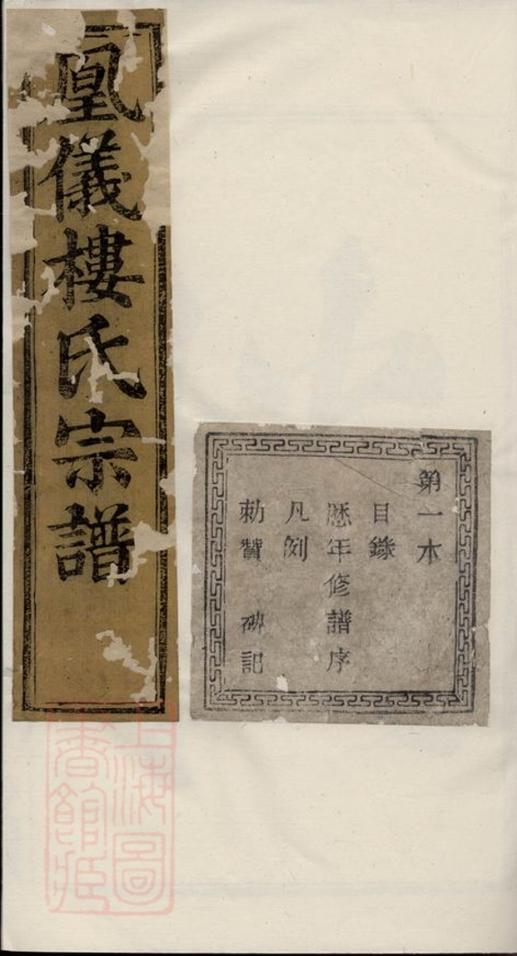 凰儀樓氏宗譜
第一本
目錄
歷年修譜序
凡例
勅贊 碑記
上海圖
書館藏